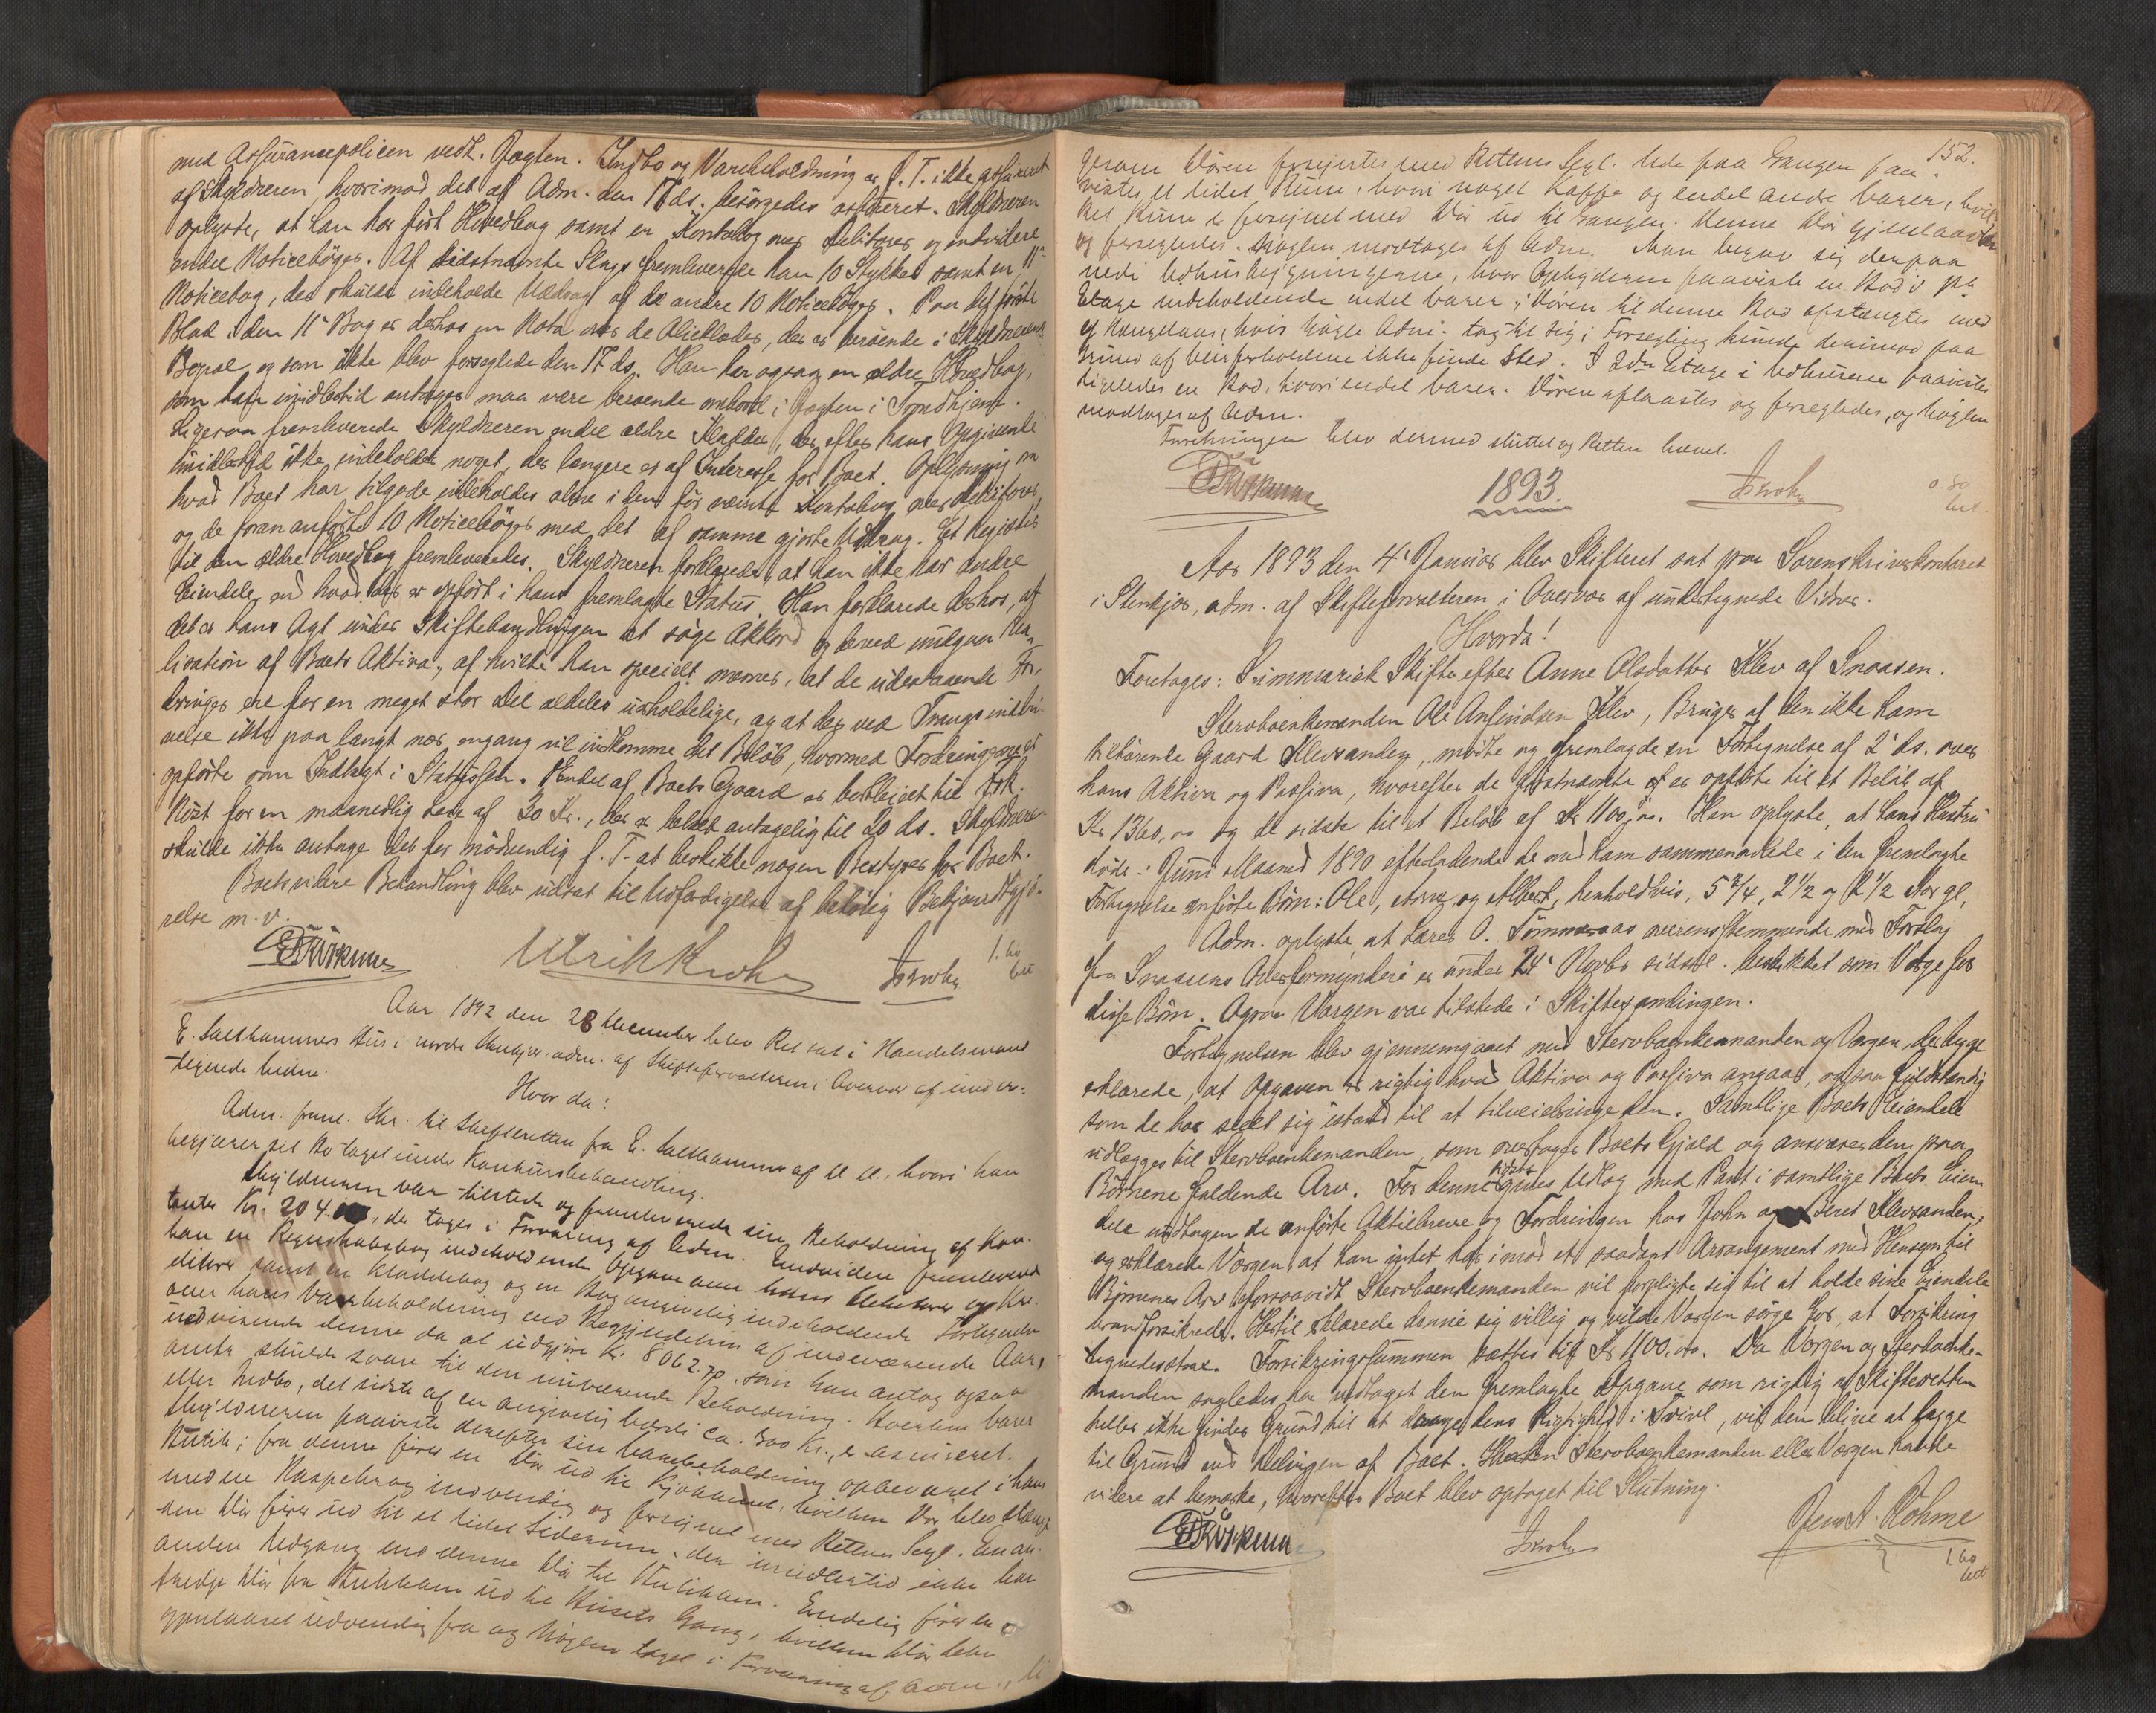 med Assurancepolicen vedk. Jagten. Indbo og Varebeholdning er f. T. ikke assureret
af Skyldneren, hvorimod det af Adm. den 17 ds. besørgedes assureret. Skyldneren
oplyste, at han har ført Hovedbog samt en Kontobog over Debitorer og endvidere
endel Noticebøger. Af sidstnævnte Slags fremleverede han 10 Stykker samt en 11te
Noticebog, der skulde indeholde Uddrag af de andre 10 Noticebøger. Paa det første
Blad i den 11te Bog er derhos en Nota over de Alieklæder, der er beroende i Skyldnerens
Bopæl og som ikke blev forseglede den 17 ds. Han har ogsaa en ældre Hovedbog,
som han imidlertid antager maa være beroende ombord i Jagten i Trondhjem.
Ligesaa fremleverede Skyldneren endel ældre Kladder, der efter hans Opgivende
imidlertid ikke indeholder noget, der længere er af Interesse for Boet. Oplysning om
hvad Boet har tilgode indeholdes alene i den før nævnte Kontobog over Debitorer
og de foran anførte 10 Noticebøger med det af samme gjorte Uddrag. Et Register
til den ældre Hovedbog fremleveredes. Skyldneren forklarede, at han ikke har andre
Eiendele, end hvad der er opført i hans fremlagte Status. Han forklarede derhos, at
det er hans Agt under Skiftebehandlingen at søge Akkord og derved undgaa Rea-
lisation af Boets Aktiva, af hvilke han specielt mener, at de udestaaende For-
dringer ere for en meget stor Del aldeles uerholdelige, og at der ved Tvangsinddri-
velse ikke paa langt nær engang vil indkomme det Beløb, hvormed Fordringerne er
opførte som Indtægt i Statussen. Endel af Boets Gaard er bortleiet til
for en maanedlig Leie af 30 Kr., der er betalt antagelig til 20 ds. Skyldneren
skulde ikke antage det for nødvendig f. T. at beskikke nogen Bestyrer for Boet.
Boets videre Behandling blev udsat til Udfærdigelse af behørig Bekjendtgjø-
relse m. v.
Ulrik Krohn
1.60
bet
Aar 1892 den 28 December blev Ret sat i Handelsmand
E. Salthammers Hus i nordre Stenkjær, adm. af Skifteforvalteren i Overvær af under-
tegnede Vidne.
Hvor da:
Adm. freml. Skr. til Skifteretten fra E. Salthammer af d. d., hvori han
begjærer sit Bo taget under Konkursbehandling.
Skyldneren var tilstede og fremleverede sin Beholdning af Kon-
tanter Kr. 204. , der toges i Forvaring af Adm. Endvidere fremleverede
han en Regnskabsbog indeholdende Opgave over hans Debitorer og Kre-
ditorer samt en Kladdebog og en Bog angivelig indeholdende Fortegnelse
over hans Varebeholdning ved Begyndelsen af indeværende Aar,
udvisende denne da at udgjøre Kr. 8062.70, som han antog ogsaa
omtr. skulde svare til den nuværende Beholdning. Hverken Varer
eller Indbo, det sidste af en angivelig Værdi ca. 300 Kr., er assureret.
Skyldneren paaviste derefter sin Varebeholdning opbevaret i hans
Butik; fra denne fører en Dør ud til Kjøkkenet, hvilken Dør blev stængt
med en Haspekrog indvendig og forsynet med Rettens Segl. En an-
den Dør fører ud til et lidet Siderum, der imidlertid ikke har
anden Udgang end denne Dør til Butikken. Endelig fører en
tredje Dør fra Butikken ud til Husets Gang, hvilken Dør blev
gjenlaaset udvendig fra og Nøglen taget i Forvaring af Adm.,
152.
Døren forsynedes med Rettens Segl. Ude paa Gangen paa-
vistes et lidet Rum, hvori noget Kaffe og endel andre Varer, hvil-
ket Rum er forsynet med Dør ud til Gangen. Denne Dør gjenlaasedes
og forsegledes. Nøglen modtages af Adm. Man begav sig derpaa
ned i Udhusbygningerne, hvor Opbyderen paaviste en Bod i 1ste
Etage indeholdende endel Varer; Døren til denne Bod afstængtes med
et Hængelaas, hvis Nøgle Adm. tog til sig; Forsegling kunde derimod paa
Grund af Veirforholdene ikke finde Sted. I 2den Etage i Udhusene paavistes
ligeledes en Bod, hvori endel Varer. Døren aflaastes og forsegledes, og Nøglen
modtoges af Adm.
Forretningen blev dermed sluttet og Retten hævet.
1893.
0.80
bet.
Aar 1893 den 4' Januar blev Skifteret sat paa Sorenskriverkontoret
i Stenkjær, adm. af Skifteforvalteren i Overvær af undertegnede Vidner.
Hvorda!
Foretoges: Summarisk Skifte efter Anne Olsdatter Klev af Snaasen.
Stervboenkemanden Ole Arnfindsen Klev, Bruger af den ikke ham
tilhørende Gaard Klevsanden, mødte og fremlagde en Fortegnelse af 2' ds. over
hans Aktiva og Passiva, hvorefter de førstnævnte er opførte til et Beløb af
Kr 1360,00 og de sidste til et Beløb af Kr 1100,00. Han oplyste, at hans Hustru
døde i Juni Maaned 1890 efterladende de med ham sammenavlede i den fremlagte
Fortegnelse anførte Børn: Ole, Arne og Albert, henholdsvis, 5 3/4, 2 1/2 og 2 1/2 Aar gl.
Adm. oplyste, at Lærer O. Tømmeraas overensstemmende med Forslag
fra Snaasens Overformynderi er under 24' Novbr sidstl. beskikket som Værge for
disse Børn. Ogsaa Værgen var tilstede i Skiftesamlingen.
Fortegnelsen blev gjennemgaaet med Stervboenkemanden og Værgen, der begge
erklærede, at Opgaven er rigtig hvad Aktiva og Passiva angaar, og saa fuldstændig
som de har seet sig istand til at tilveiebringe den. Samtlige Boets Eiendele
udlægges til Stervboenkemanden, som overtager Boets Gjæld og ansvarer den paa
Børnene faldende Arv. For denne sidste gives Udlæg med Pant i samtlige Boets Eien-
dele undtagen de anførte Aktiebreve og Fordringen hos John og Beret Klevsanden,
og erklærede Værgen, at han intet har imod et saadant Arrangement med Hensyn til
Børnenes Arv forsaavidt Stervboenkemanden vil forpligte sig til at holde sine Eiendele
brandforsikrede. Hertil erklærede denne sig villig og vilde Værgen sørge for, at Forsikring
tegnedes strax. Forsikringssummen sættes til Kr 1100,00. Da Værgen og Stervboenke-
manden saaledes har vedtaget den fremlagte Opgave som rigtig og Skifteretten
heller ikke finder Grund til at drage dens Rigtighed i Tvivl, vil den blive at lægge
til Grund ved Delingen af Boet. Hverken Stervboenkemanden eller Værgen havde
videre at bemærke, hvorefter Boet blev optaget til Slutning.
1.60
bet